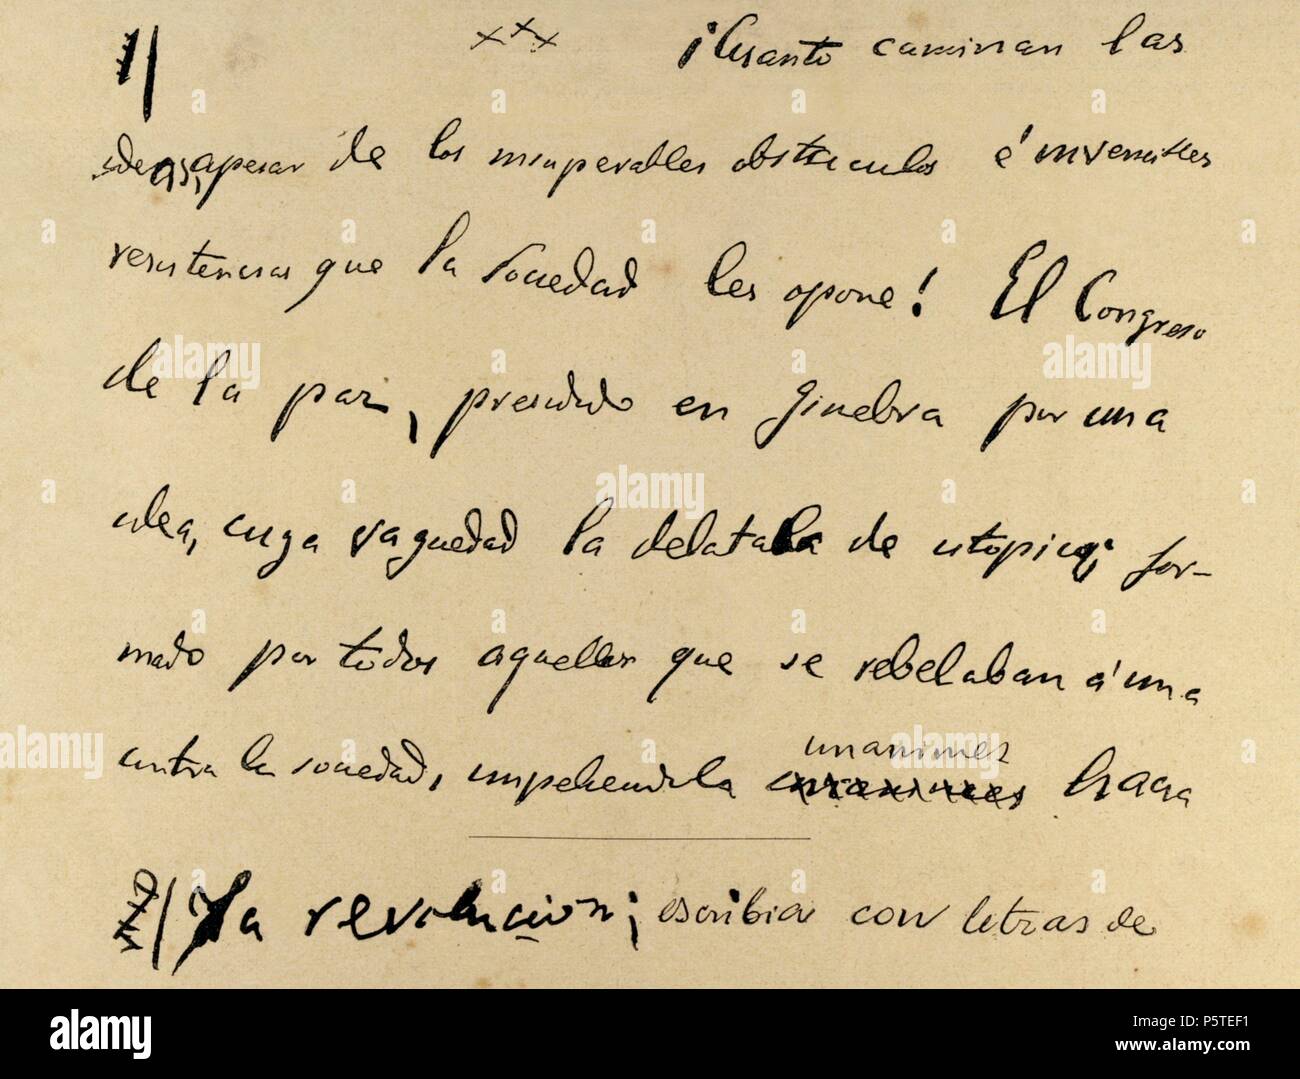 ¡Cuanto caminan las
ideas, apesar de los insuperables obstaculos é invencibles
resistencias que la sociedad les opone! El Congreso
de la paz, presidido en Ginebra por una
idea, cuya vaguedad la delataba de utopica; for-
mado por todos aquellos que se rebelaban á una
contra la sociedad,
unanimes
hacia
La revolucion; escribia con letras de
alamy
Image ID: P5TEF1
www.alamy.com